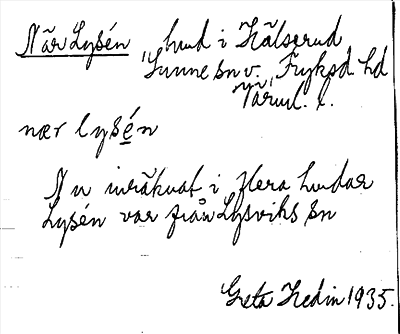 När Lysén, hmd i Hälserud
Sunne sn v. Fryksd. hd
Värml. l.
nær lysén
Nu inräknat i flera hmdar
Lysén var från Lysviks sn
Greta Hedin 1935.